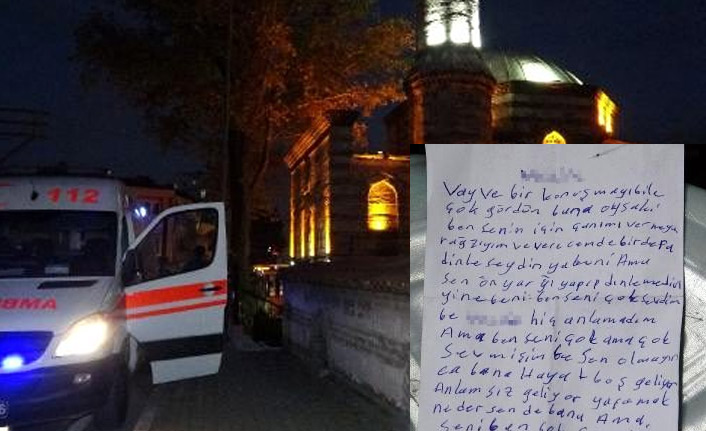 112
Vay ve bir konuşmayıbile
çok gördün bana oysaki
ben senin için canımı vermeye
razıyım ve verecemde birdefa
dinleseydin ya beni Ama
sen ön yargı yapıp dinlemedin
yine beni ben seni çok sevdim
be hiç anlamadım
Ama ben seni çok ama çok
sevmişim be sen olmayın
ca bana Hayat boş geliyor
Anlamsız geliyor yaşamak
neder sen de bana Ama